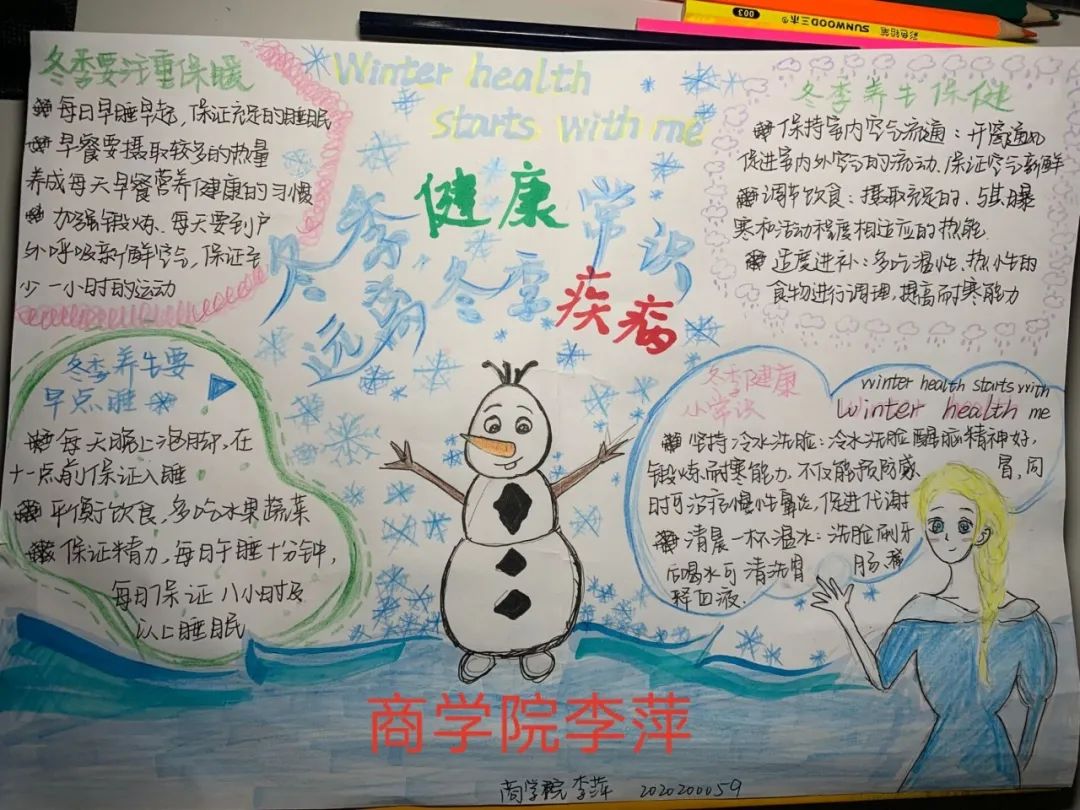 SUNWOOD三木 彩色铅笔
003
Winter health
starts with me
冬季健康常识
远离冬季疾病
冬季要注重保暖
每日早睡早起,保证充足的睡眠
早餐要摄取较多的热量
养成每天早餐营养健康的习惯
加强锻炼、每天要到户
外呼吸新鲜空气,保证至
少一小时的运动
冬季养生保健
保持室内空气流通:开窗通风
促进室内外空气的流动.保证空气新鲜
调节饮食:摄取充足的、与其曝
寒和活动程度相适应的热能
适度进补:多吃温性、热性的
食物进行调理,提高耐寒能力
冬季养生要
早点睡
每天晚上泡脚,在
十一点前保证入睡
平衡饮食,多吃水果蔬菜
保证精力,每日午睡十分钟,
每日保证八小时及
以上睡眠
冬季健康
小常识
winter health starts with
Winter health me
坚持冷水洗脸:冷水洗脸醒脑精神好,
锻炼耐寒能力.不仅能预防感冒,同
时可治疗慢性鼻炎,促进代谢
清晨一杯温水:洗脸刷牙
后喝水可清洗胃肠,稀
释血液.
商学院李萍
商学院 李萍 2020200059